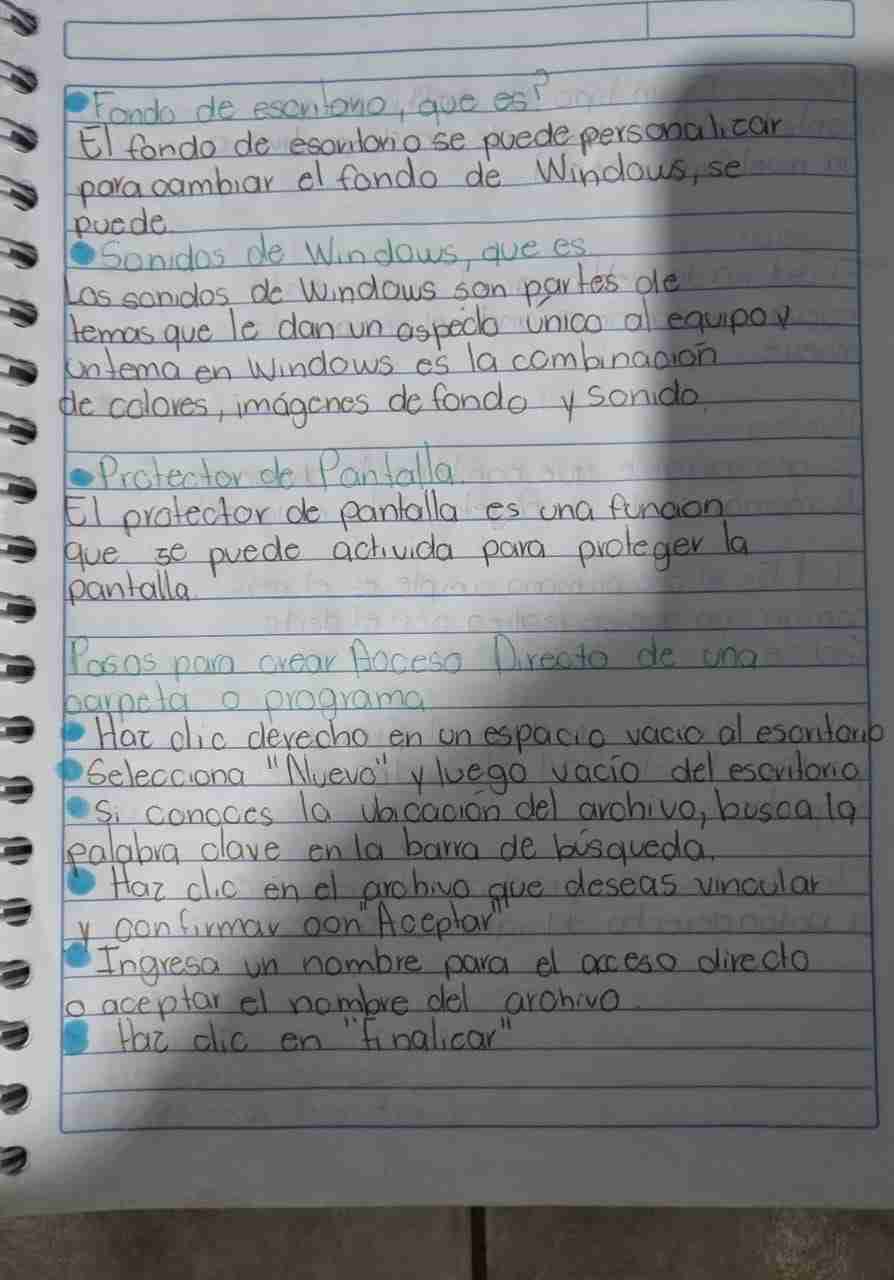 Fondo de escritorio, que es?
El fondo de escritorio se puede personalizar
para cambiar el fondo de Windows, se
puede.
Sonidos de Windows, que es
Los sonidos de Windows son partes de
temas que le dan un aspecto único al equipo y
un tema en Windows es la combinación
de colores, imágenes de fondo y sonido.
Protector de Pantalla.
El protector de pantalla es una funcion
que se puede activida para proteger la
pantalla.
Pasos para crear Acceso Directo de una
carpeta o programa
Haz clic derecho en un espacio vacio al escritorio
Selecciona "Nuevo" y luego vacío del escritorio
Si conoces la ubicación del archivo, busca la
palabra clave en la barra de búsqueda.
Haz clic en el archivo que deseas vincular
y confirmar con "Aceptar"
Ingresa un nombre para el acceso directo
o aceptar el nombre del archivo.
Haz clic en "finalizar"